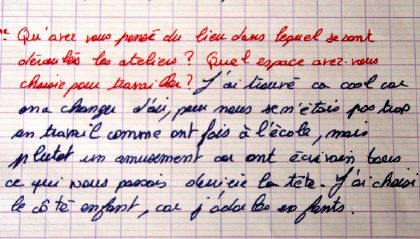 Qu'avez vous pensé du lieu dans lequel se sont
déroulés les ateliers ? Quel espace avez-vous
choisie pour travailler ? J'ai trouvé ca cool car
on a changer d'air, pour nous se m'étais pas trop
un travail comme ont fais à l'école, mais
plutot un amusement car ont écrivain tous
ce qui nous passais derrière la tête. J'ai choisi
le côté enfant, car j'adore les enfants.